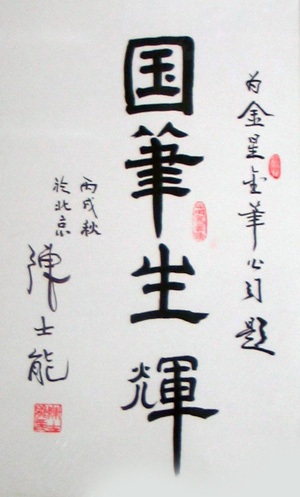 为金星金筆公司题
国筆生輝
丙戌秋
於北京
陳士能